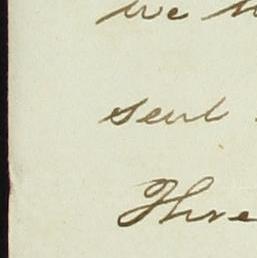 we
sent
Thre